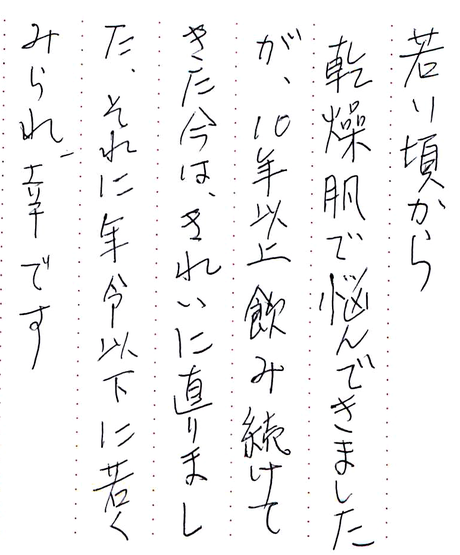 若い頃から
乾燥肌で悩んできました
が、10年以上飲み続けて
きた今は、きれいに直りまし
た、それに年令以下に若く
みられ、幸です